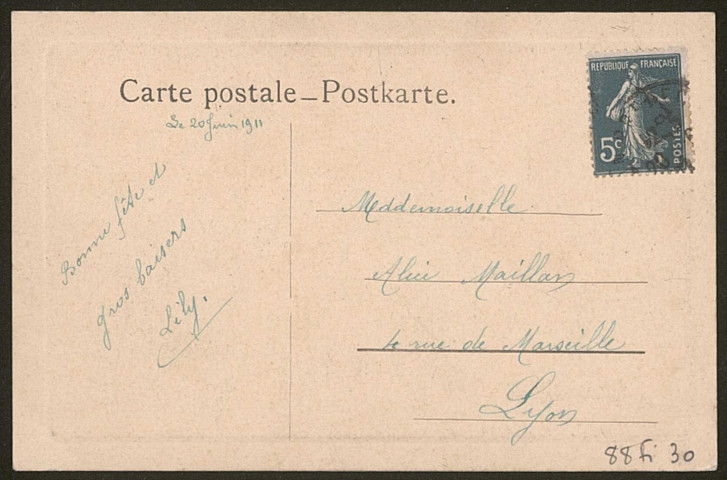 Carte postale – Postkarte.
Le 20 Juin 1911
Bonne fête et
gros baisers
Lily.
REPUBLIQUE FRANÇAISE
5c
POSTES
Meddemoiselle
Alice Maillan
4 rue de Marseille
Lyon
88 fi 30